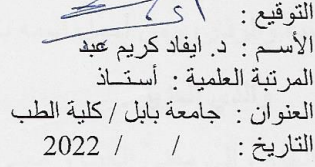 التوقيع :
الأسم : د. ايفاد كريم عبد
المرتبة العلمية : أستاذ
العنوان : جامعة بابل / كلية الطب
التاريخ : / / 2022